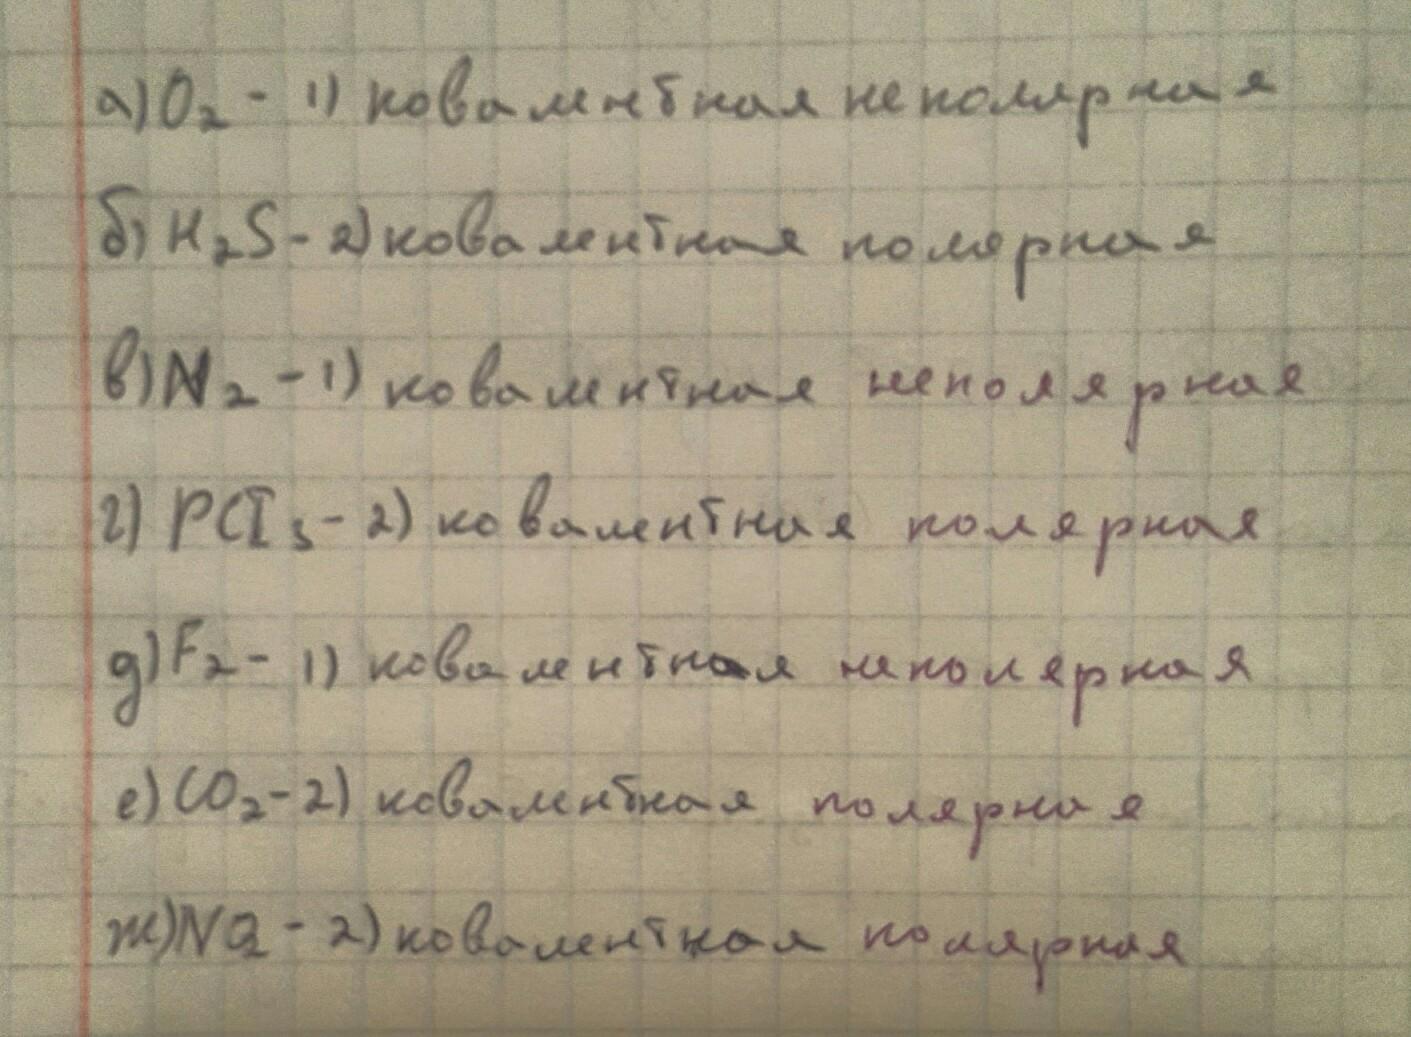 а) O₂ - 1) ковалентная неполярная
б) H₂S - 2) ковалентная полярная
в) N₂ - 1) ковалентная неполярная
г) PCI₃ - 2) ковалентная полярная
д) F₂ - 1) ковалентная неполярная
е) CO₂ - 2) ковалентная полярная
ж) NO₂ - 2) ковалентная полярная